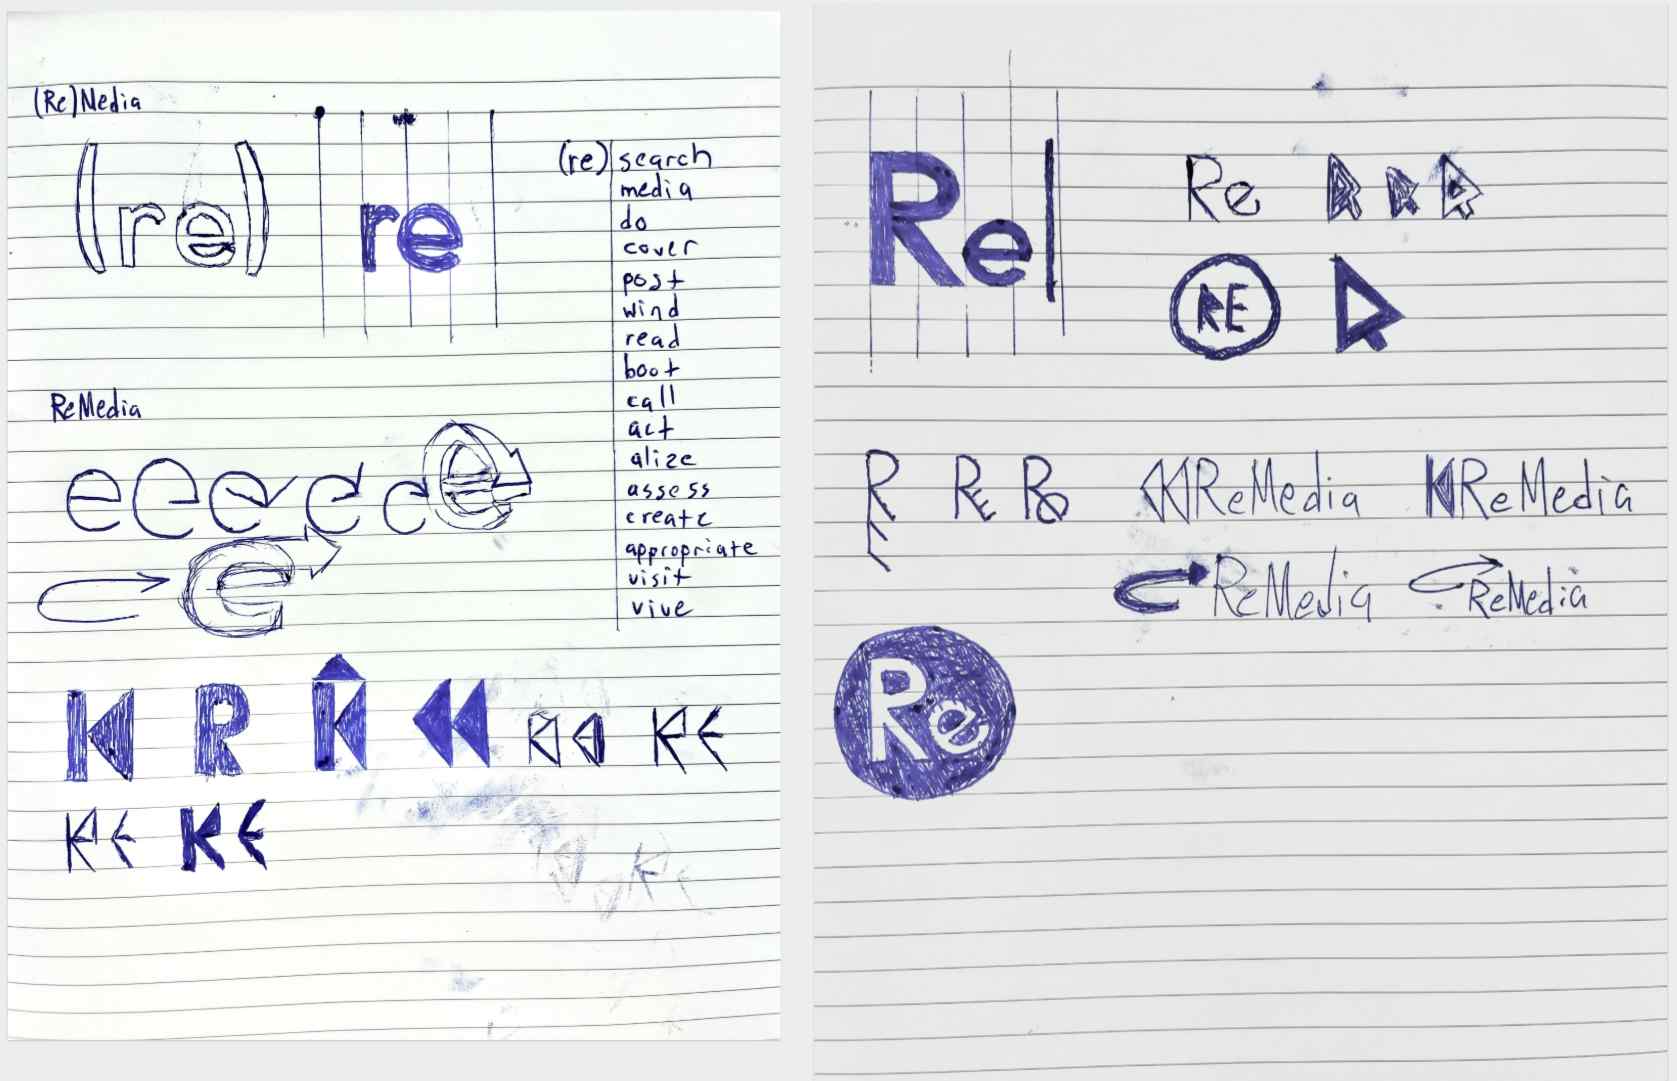 (Re)Media
(re)
re
(re) search
media
do
cover
post
wind
read
boot
call
act
alize
assess
create
appropriate
visit
vive
ReMedia
e e e e e e
e
R
Re
Re
RE
R
ReMedia
ReMedia
ReMedia
ReMedia
Re